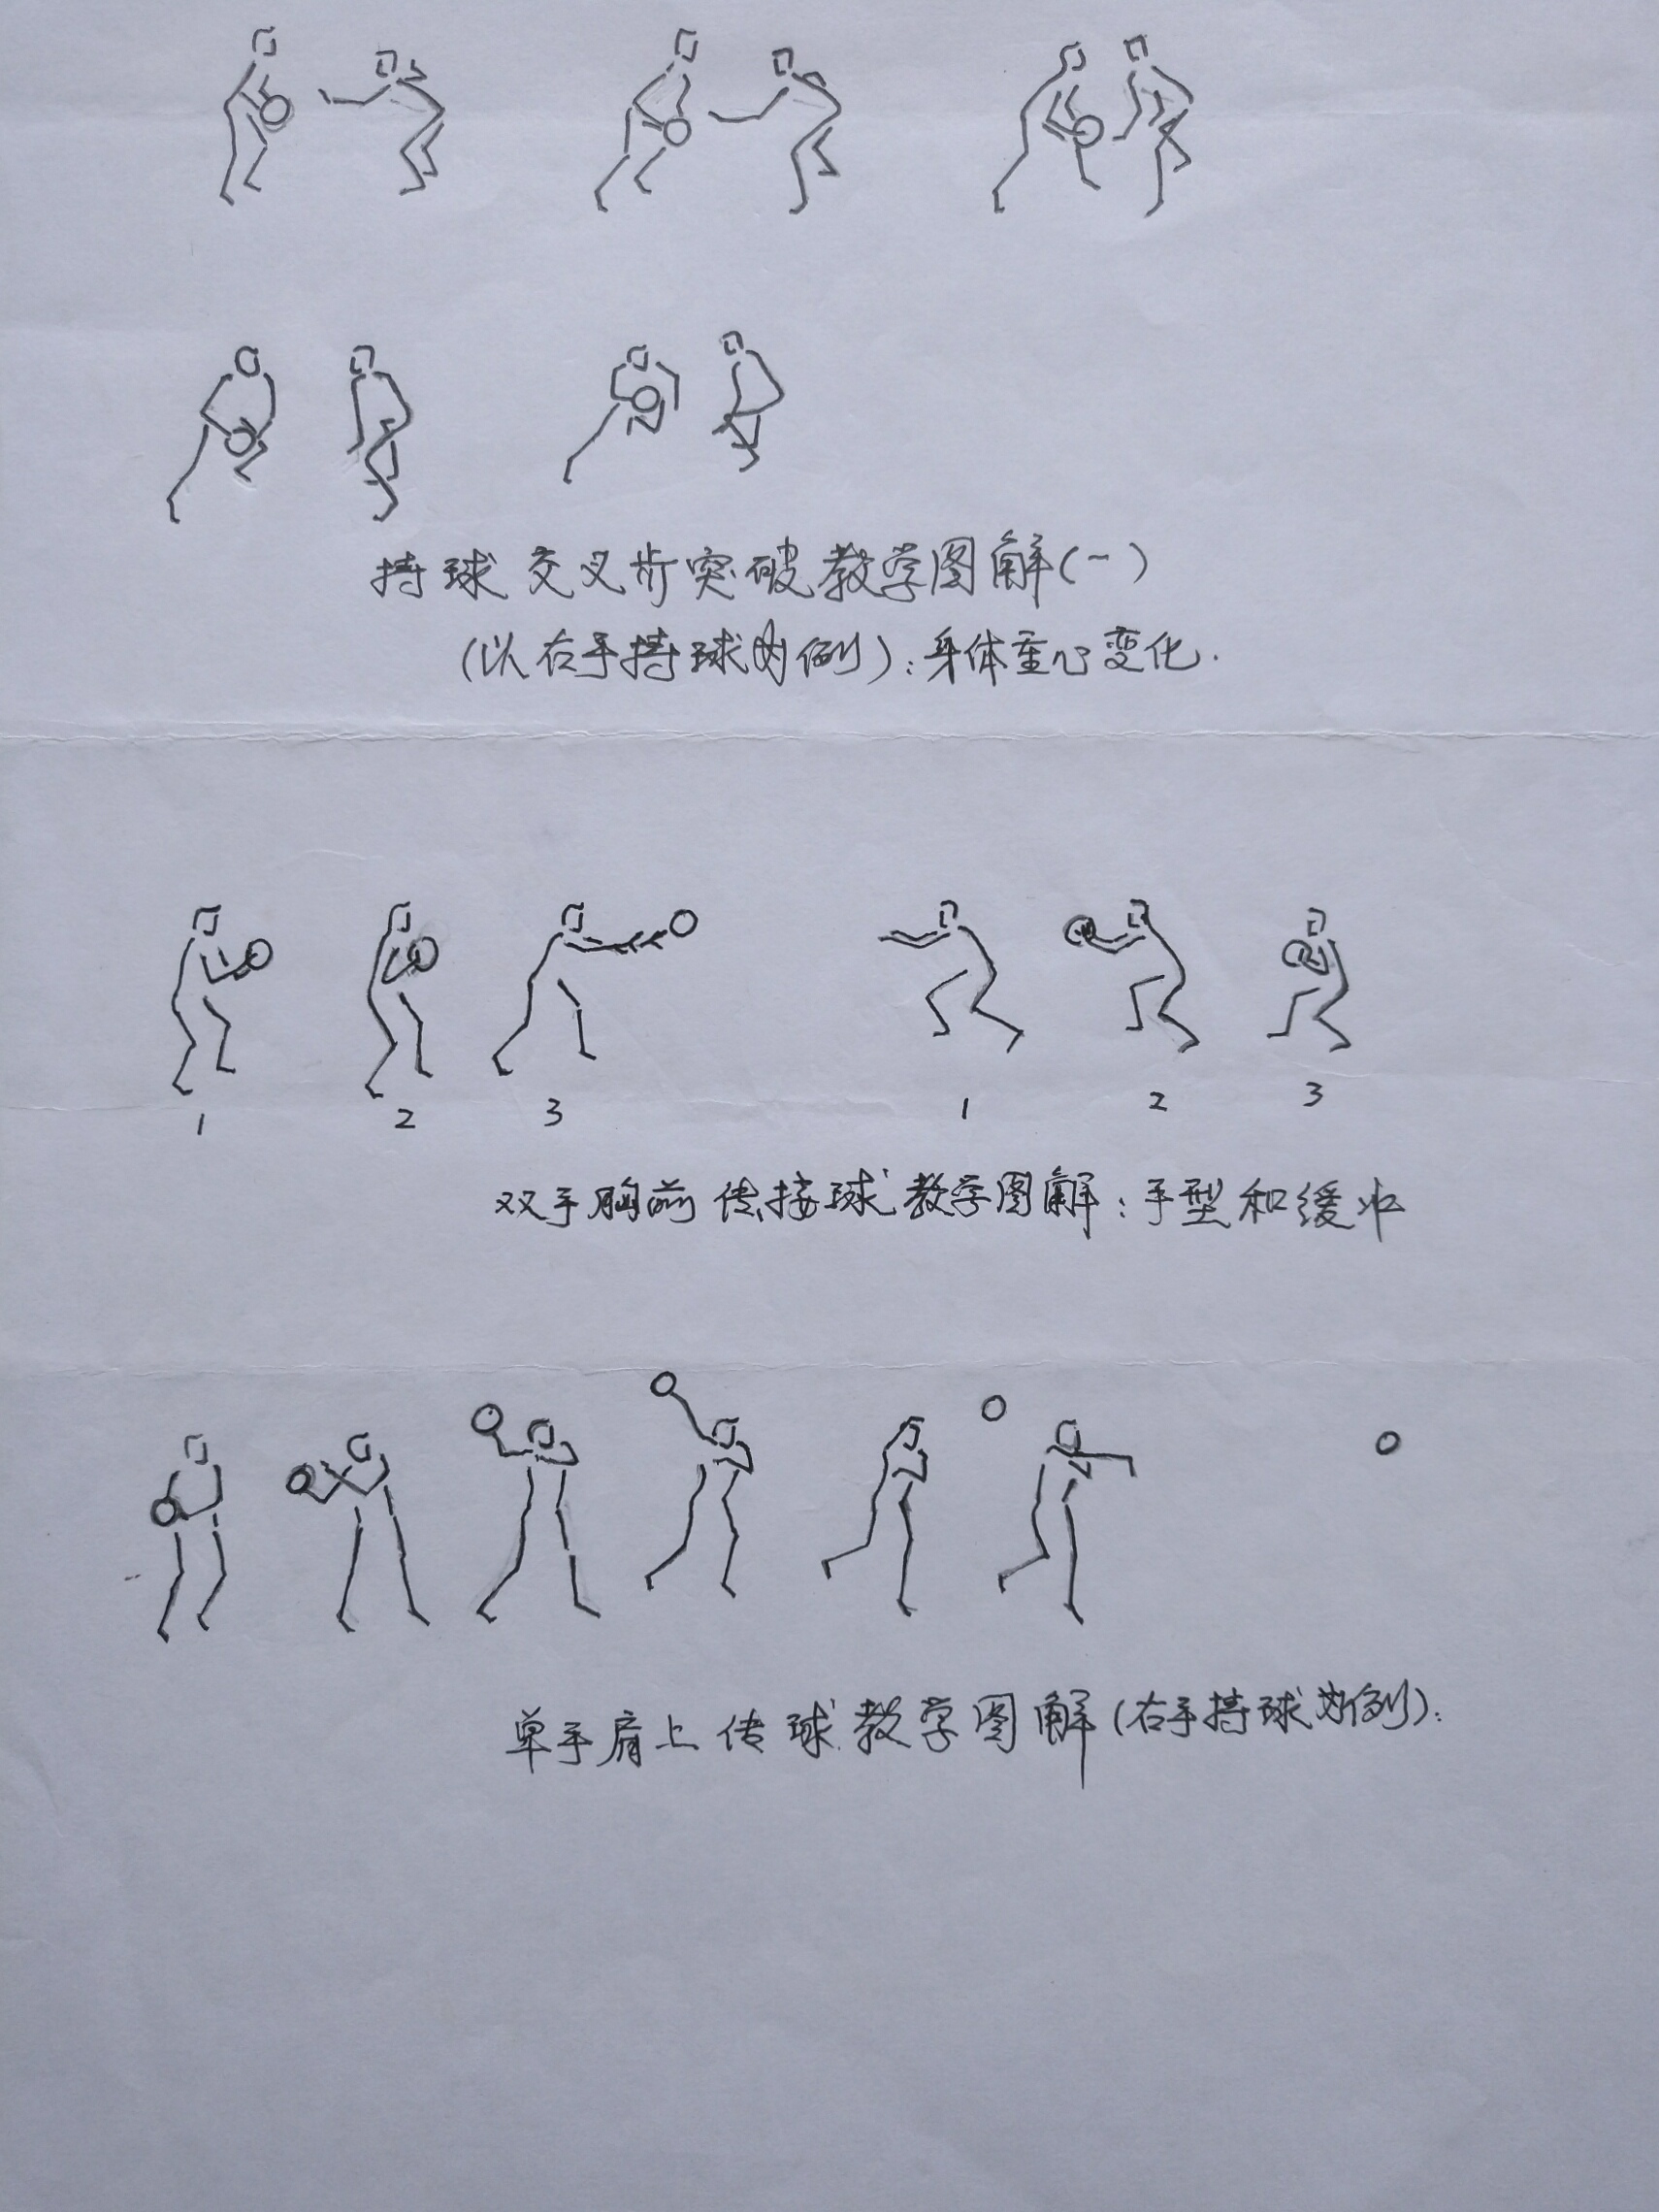 持球交叉步突破教学图解(一)
(以右手持球为例):身体重心变化.
1 2 3 1 2 3
双手胸前传接球教学图解:手型和缓冲
单手肩上传球教学图解(右手持球为例):